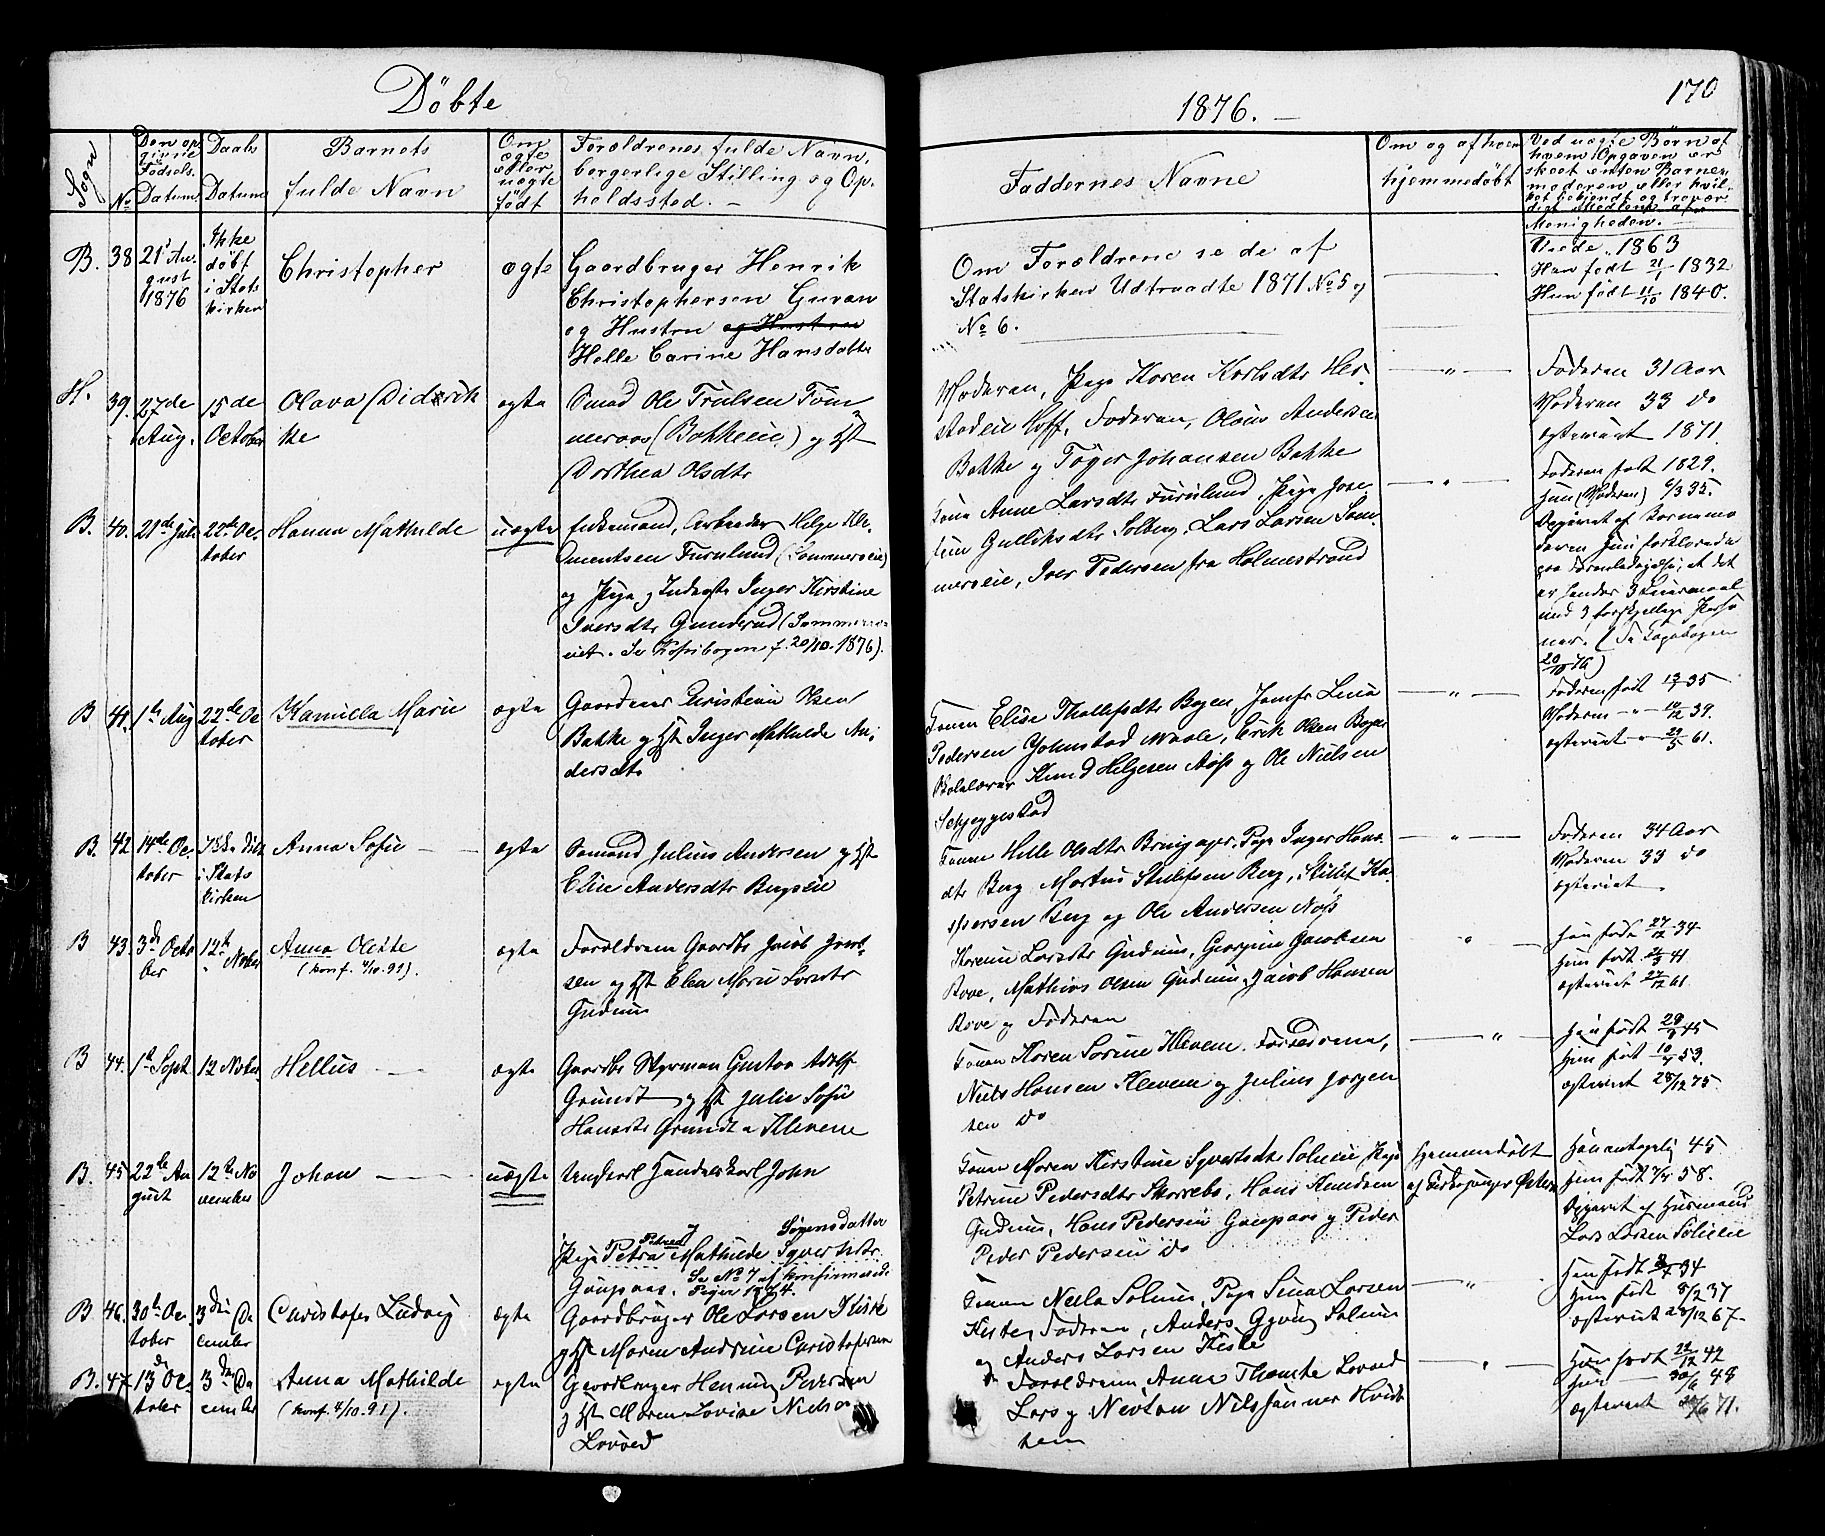 Döbte
1876. —
170
Sogn
No
Den op-
givne
Födsels
Datum
Daabs
Datum
Barnets
fulde Navn
Om
ægte
eller
uægte
født
Forældrenes fulde Navn,
borgerlige Stilling og Op-
holdssted. —
Faddernes Navne
Om og af hvem
hjemmedöbt
Ved uægte Börn af
hvem Opgaven er
skeet enten Barne-
moderen eller hvil-
ket bekjendt og trovær-
digt Medlem af
Menigheden.
B. 38
21 Au-
gust
1876
Ikke
döbt
i Stats
kirken
Christopher
ægte
Gaardbruger Henrik
Christophersen Guran
og Hustru og Hustru
Helle Carine Hansdatter
Om Forældrene se de af
Statskirken Udtraadte 1871 No 5 og
No 6.
Viede 1863
Han født 21/1 1832
Hun født 11/10 1840.
H. 39.
27de
Aug.
15de
October
Olava Didrik
ke
ægte
Smed Ole Trulsen Töm
meraas (Bakkeeie) og Hst
Dorthea Olsdtr
Moderen, Pige Karen Karlsdtr Her-
stadeie Hoff, Faderen, Olaus Andersen
Bakke og Töger Johansen Bakke
Faderen 31 Aar
Moderen 33 do
ægteviet 1871.
B. 40.
21de Juli
22de Oc-
tober
Hanna Mathilde
uægte
Enkemand, Arbeider Helge Kle-
mentsen Furulund (Sommerseie)
og Pige Inderste Inger Kirstine
Iversdtr Gunderud (Sommers-
eiet. Se Kopibogen f. 20/10. 1876).
Kone Anne Larsdtr Furulund, Pige Jose
fine Gulliksdtr Solberg, Lars Larsen Som-
merseie, Iver Pedersen fra Holmestrand
Faderen født 1829.
Hun (Moderen) 6/3 35.
Opgivet af Barnemo
deren
er hendes 3 Leiermaal
med 3 forskjellige Perso
ner. (Se Dagbogen
20/10 76)
B 41.
1ste Aug
22de Oc
tober
Kamilla Marie
ægte
Gaardeier Christian Olsen
Bakke og Hst Inger Mathilde An-
dersdtr
Konen Elise Tholfsdtr Bogen, Jomfr Lina
Pedersen Johnstad Vaale, Erik Olsen Bogen
Skolelærer Knud Helgesen Aas og Ole Nielsen
Schjeggestad
Faderen født 13/7 35
Moderen —"— 10/12 39.
ægteviet " 29/5 61.
B. 42
14de Oc-
tober
Ikke döbt
i Stats
kirken
Anna Sofie
ægte
Sømand Julius Andersen og Hst
Eline Andersdtr Bergseie
Konen Helle Olsdtr Pige Inger Hans-
dtr Berg Martin Berg, Ka-
spersen Berg og Ole Andersen Næs
Faderen 34 Aar
Moderen 33 do
ægteviet
B 43.
3de Octo
ber
12te
" Novbr
Anna Olette
(konf. 4/10. 91).
ægte
Forældrene Gaardbr Jacob Jacob-
sen og Hst Elen Marie Larsdtr
Gudum
Karine Larsdtr Gudum, Georgine Jacobsen
Rove, Mathias Olsen Gudum, Jacob Hansen
Rove og Faderen
Han født 27/12 34
Hun født 21/3 41
ægteviet 27/12 61.
B 44.
1ste Sept
12 Novbr.
Hellus
ægte
Gaardbr Styrmand Gustav Adolf
Grundt og Hst Julie Sofie
Hansdtr Grundt Klevene
Konen Karen Sorine Klevene. Forældrene,
Niels Hansen Klevene og Julius Jorgen
sen do
Han født 29/9 45
Hun født 10/4 53.
ægteviet 28/12 75
B. 45
22de Au
gust
12te No
vember
Johan
uægte
Ungkarl Handelskarl John
Pige Petra Mathilde Syvertsdtr.
Petrea
Sörensdatter
Gaupaas. Se No 7 af konfirmerede
Piger 1874.
Konen Maren Kirstine Syvertsdtr Solneie, Pige
Petrine Pedersdtr Skorrebo, Hans Knudsen
Gudum, Hans Pedersen Gaupaas og Peder
Peder Pedersen do
Hjemmedöbt
af Kirkesanger
Han antagelig 45
Hun født 7/4 58.
Opgivet af Husmand
Lars Larsen Solneie
B 46.
30te Oc
tober
3die De
cember
Christofer Ludvig
ægte
Gaardbruger Ole Larsen Kiste
og Hst Maren Andrine Christofersen
Konen Nella Solnes, Pige Sina Larsen
Kiste, Faderen, Anders Solnes
og Anders Larsen Kiste
Han født 34
Hun født 8/2 37
ægteviet 28/12 67.
B. 47
13de Oc
tober
3die De
cember
Anna Mathilde
(konf. 4/10. 91).
ægte
Gaardbruger Henning Pedersen
og Hst Maren Lovise Nielsen
Lovoed
Forældrene, Anne Thomte Lovoed
Lars og Nevton Nilsen Hvidt
sten
Han født 22/12 42
Hun — 30/6 49
ægteviet 71.